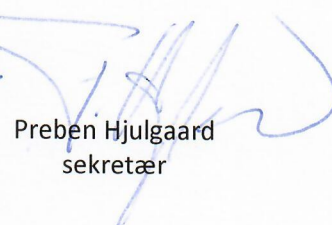 Preben Hjulgaard
sekretær